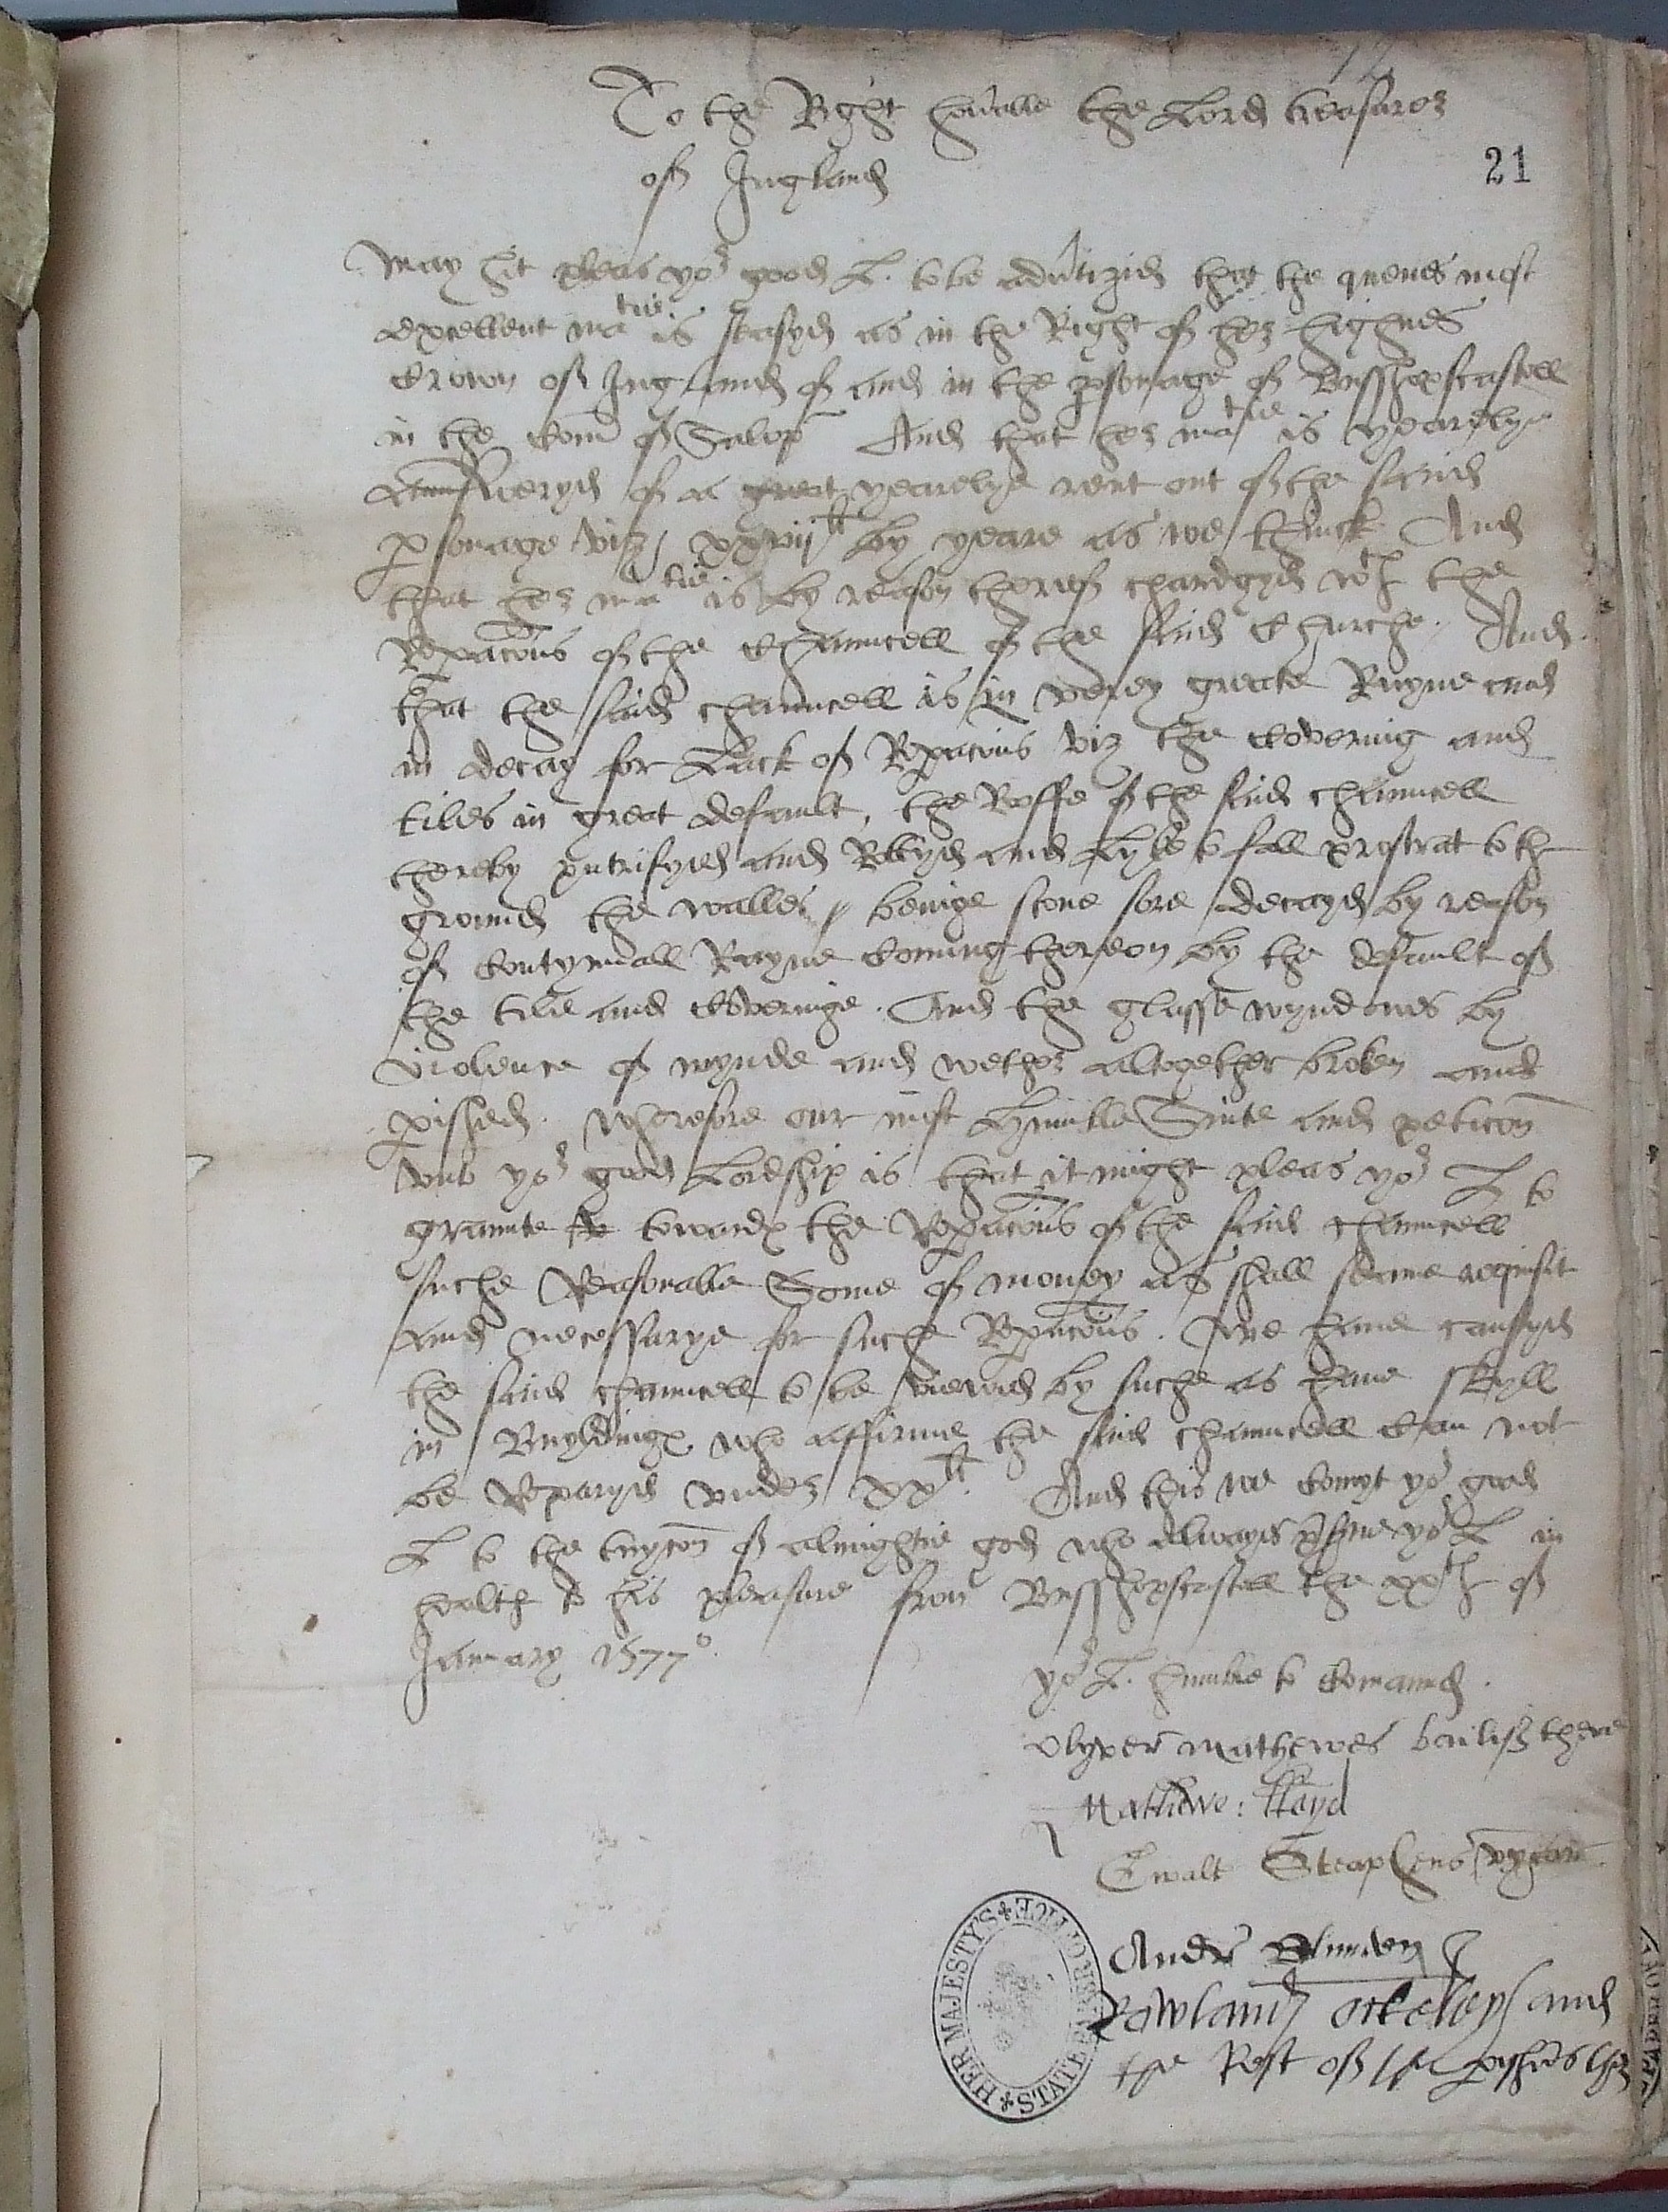 12
To the Right honable the Lord treasurer
of Ingland
21
May hit pleas yor good L. to be advtizid that the quenes most
excellent matie is seasyd as in the Right of her highnes
Crown of Ingland of and in the psonage of Busshopscastell
in the Com of Salop And that her matie is yearelye
Aunsweryd of a great yearelye rent out of the said
psonage viz xxviij li by yeare as we thinck And
that her matie is by reason therof chardgyd wth the
Repacons of the Chauncell of the said Churche. And
that the said chauncell is in verey greate Ruyne and
in decay for Lack of Repacons viz the Covering and
tiles in great default, the Roffe of the said chauncell
thereby putrifyed and Rottyd and Lyke to fall prostrat to the
ground the walles beinge stone sore decayd by reason
of Contynuall Rayne Coming thereon by the default of
the tile and Coveringe. And the glasse wyndows by
violence of wynde and wether altogether broken and
pished. Wherefore our most humble Suite and peticon
unto yor good Lordship is that it might pleas yor L to
graunte towards the Repacons of the said chauncell
suche Reasonable Some of money as shall seame requisit
and necessarye for suche Repacons. We have causyd
the said chauncell to be viewed by suche as have skyll
in Buyldings who affirme the said chauncell Can not
be Reparyd under xx li. And this we Comyt yor good
L to the tuycon of almightie god who alwayes pserve yor L in
health to his pleasure from Busshopscastell the xxth of
January 1577o.
yor L. humble to Comaund.
Olyver Mathewes bailif there
Mathewe: lloyd
Ewalt Steaphens vycar
Andr Blunden
Rowland and
the Rest of the pishoners ther
HER MAJESTY'S STATE PAPER OFFICE